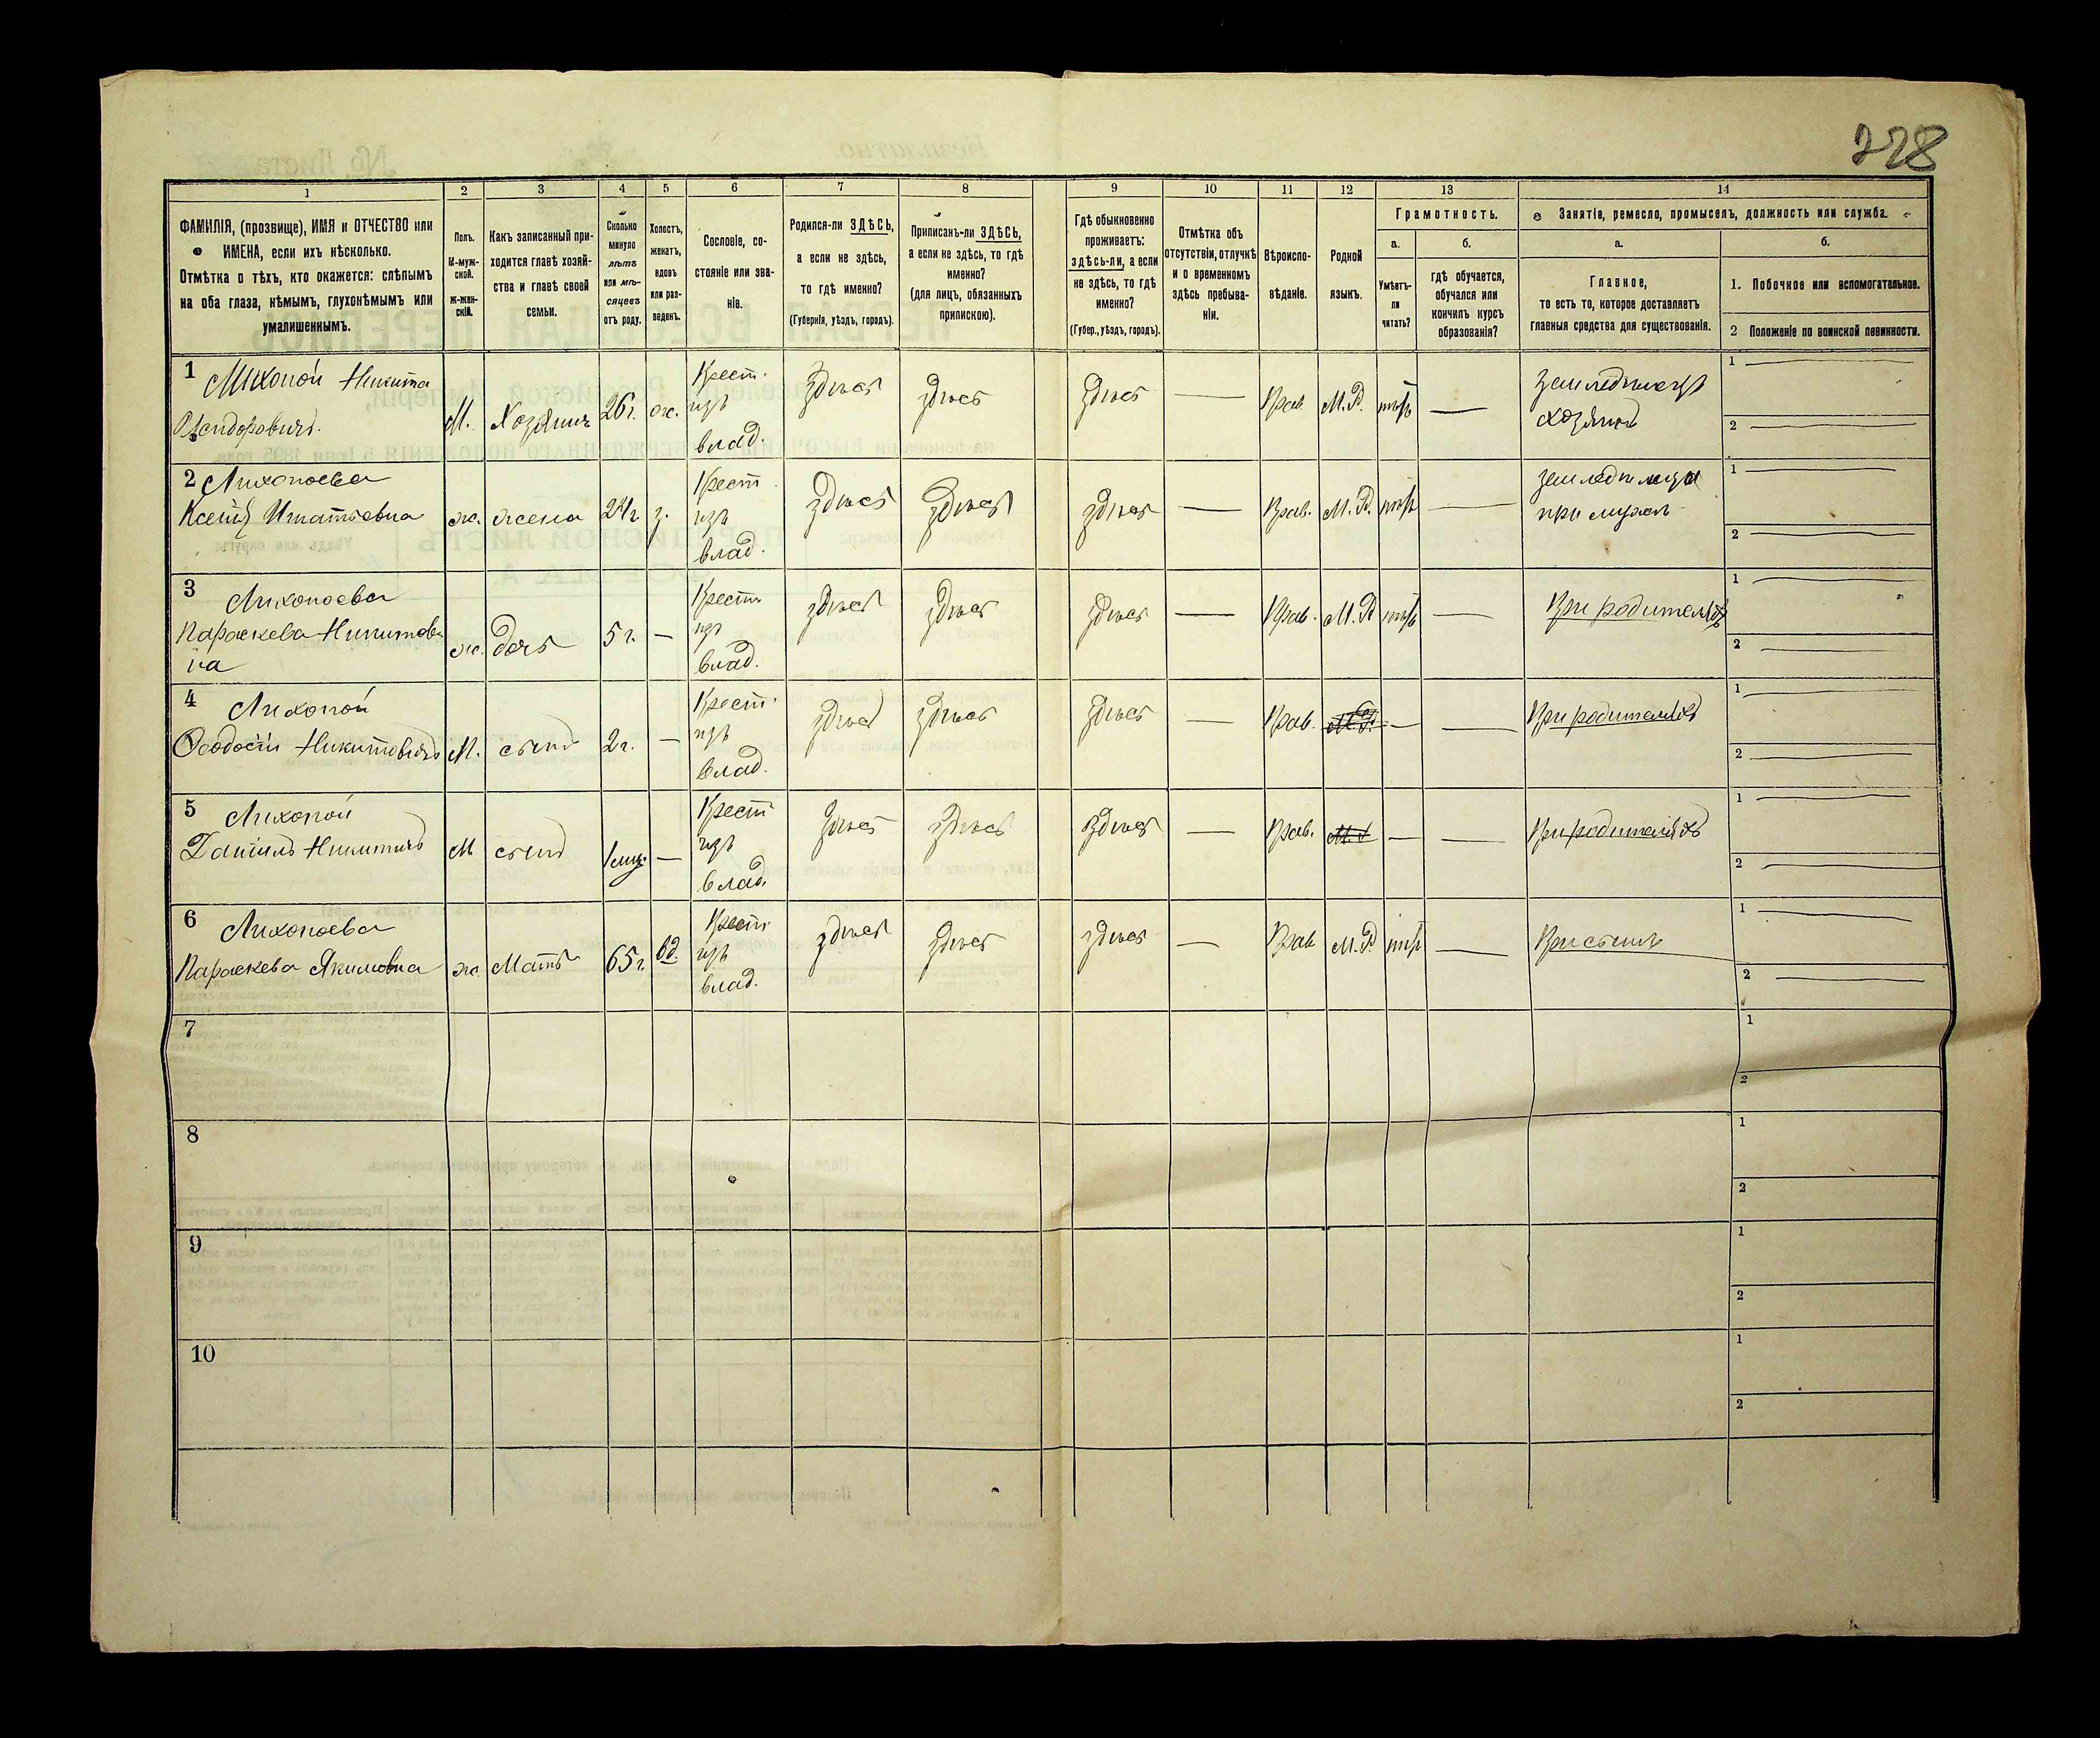 228
1
2
3
4
5
6
7
8
9
10
11
12
13
14
ФАМИЛІЯ, (прозвище), ИМЯ и ОТЧЕСТВО или
ИМЕНА, если ихъ нѣсколько.
Отмѣтка о тѣхъ, кто окажется: слѣпымъ
на оба глаза, нѣмымъ, глухонѣмымъ или
умалишеннымъ.
Полъ.
М-муж-
ской.
Ж-жен-
скій.
Какъ записанный при-
ходится главѣ хозяй-
ства и главѣ своей
семьи.
Сколько
минуло
лѣтъ
или мѣ-
сяцевъ
отъ роду.
Холостъ,
женатъ,
вдовъ
или раз-
веденъ.
Сословіе, со-
стояніе или зва-
ніе.
Родился-ли ЗДѢСЬ,
а если не здѣсь,
то гдѣ именно?
(Губернія, уѣздъ, городъ).
Приписанъ-ли ЗДѢСЬ,
а если не здѣсь, то гдѣ
именно?
(для лицъ, обязанныхъ
припискою).
Гдѣ обыкновенно
проживаетъ:
здѣсь-ли, а если
не здѣсь, то гдѣ
именно?
(Губер., уѣздъ, городъ).
Отмѣтка объ
отсутствіи, отлучкѣ
и о временномъ
здѣсь пребыва-
ніи.
Вѣроиспо-
вѣданіе.
Родной
языкъ.
Грамотность.
а.
Умѣетъ-
ли
читать?
б.
гдѣ обучается,
обучался или
кончилъ курсъ
образованія?
Занятіе, ремесло, промыселъ, должность или служба.
а.
Главное,
то есть то, которое доставляетъ
главныя средства для существованія.
б.
1. Побочное или вспомогательное.
2 Положеніе по воинской повинности.
1 Лихопой Никита
М. Хозяинъ 26 г. ж. Крест. изъ влад. здѣсь здѣсь здѣсь — Прав. М.Р. нѣтъ — земледѣлецъ
хозяинъ
1 —
2 —
2 Лихопоева
Ксенія Игнатьевна ж. жена 24 г. з. Крест. изъ влад. здѣсь здѣсь здѣсь — Прав. М.Р. нѣтъ —
при мужѣ
1 —
2 —
3 Лихопоева
Параскева Никитов-
на ж. дочь 5 г. — Крест. изъ влад. здѣсь здѣсь здѣсь — Прав. М.Р. нѣтъ — При родителяхъ
1 —
2 —
4 Лихопой
Ѳеодосій Никитовичъ М. сынъ 2 г. — Крест. изъ влад. здѣсь здѣсь здѣсь — Прав. М.Р. — — При родителяхъ
1 —
2 —
5 Лихопой
Даніилъ Никитичъ М сынъ 1 мѣс. — Крест. изъ влад. здѣсь здѣсь здѣсь — Прав. М.Р — — При родителяхъ
1 —
2 —
6 Лихопоева
Параскева Якимовна ж. Мать 65 г. вд. Крест. изъ влад. здѣсь здѣсь здѣсь — Прав М.Р нѣтъ — При сынѣ
1 —
2 —
7
1
2
8
1
2
9
1
2
10
1
2